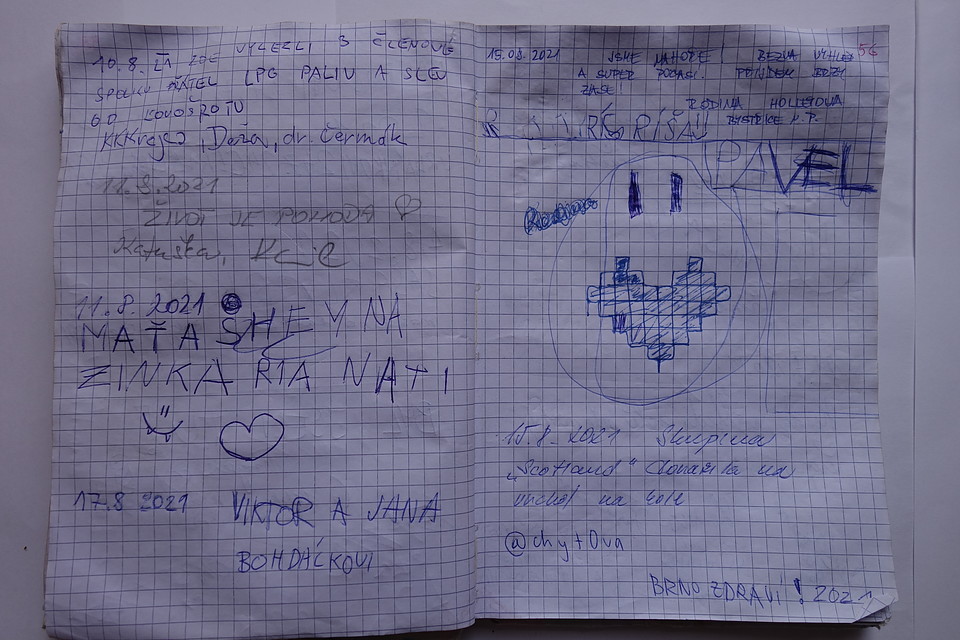 10.8. ZDE VYLEZLI 3 ČLENOVÉ
SPOLKU PŘÁTEL LPG PALIV A SLEV
DO KOVOŠROTU
KKKrejčí, Doža, dr. Čermák
11.8.2021
ŽIVOT JE POHODA
Katuška,
11.8.2021
MAŤA SHEYNA
ZINKA RIA NATI
17.8 2021 VIKTOR A JANA
BOHDÁČKOVI
56
15.08.2021 JSME NAHOŘE! BEZVA VÝHLED
A SUPER POČASÍ. PŘIJDEM BRZY
ZASE!
RODINA HOLLEYOVA
BYSTŘICE P.P.
ŘÍŠA
PAVEL
15.8.2021 Skupina
„Scotland“ dorazila na
vrchol na kole
@chytOva
BRNO ZDRAVÍ! 2021